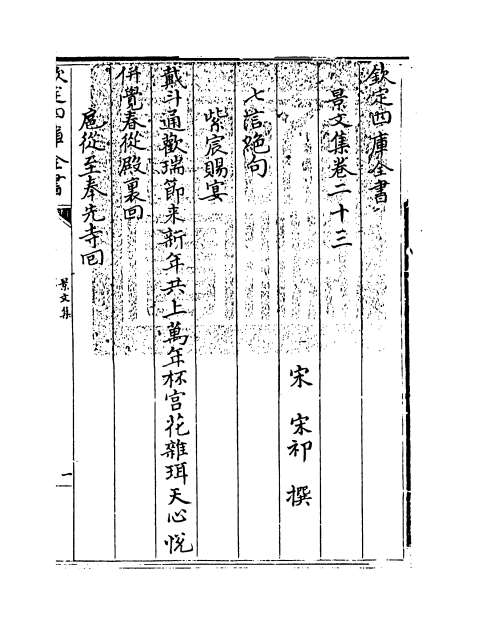 欽定四庫全書
景文集卷二十三
宋 宋祁 撰
七言絶句
紫宸賜宴
戴斗通歡瑞節來新年共上萬年杯宫花雜珥天心悅
併覺春從殿裏回
扈從至奉先寺回
欽定四庫全書
景文集
一